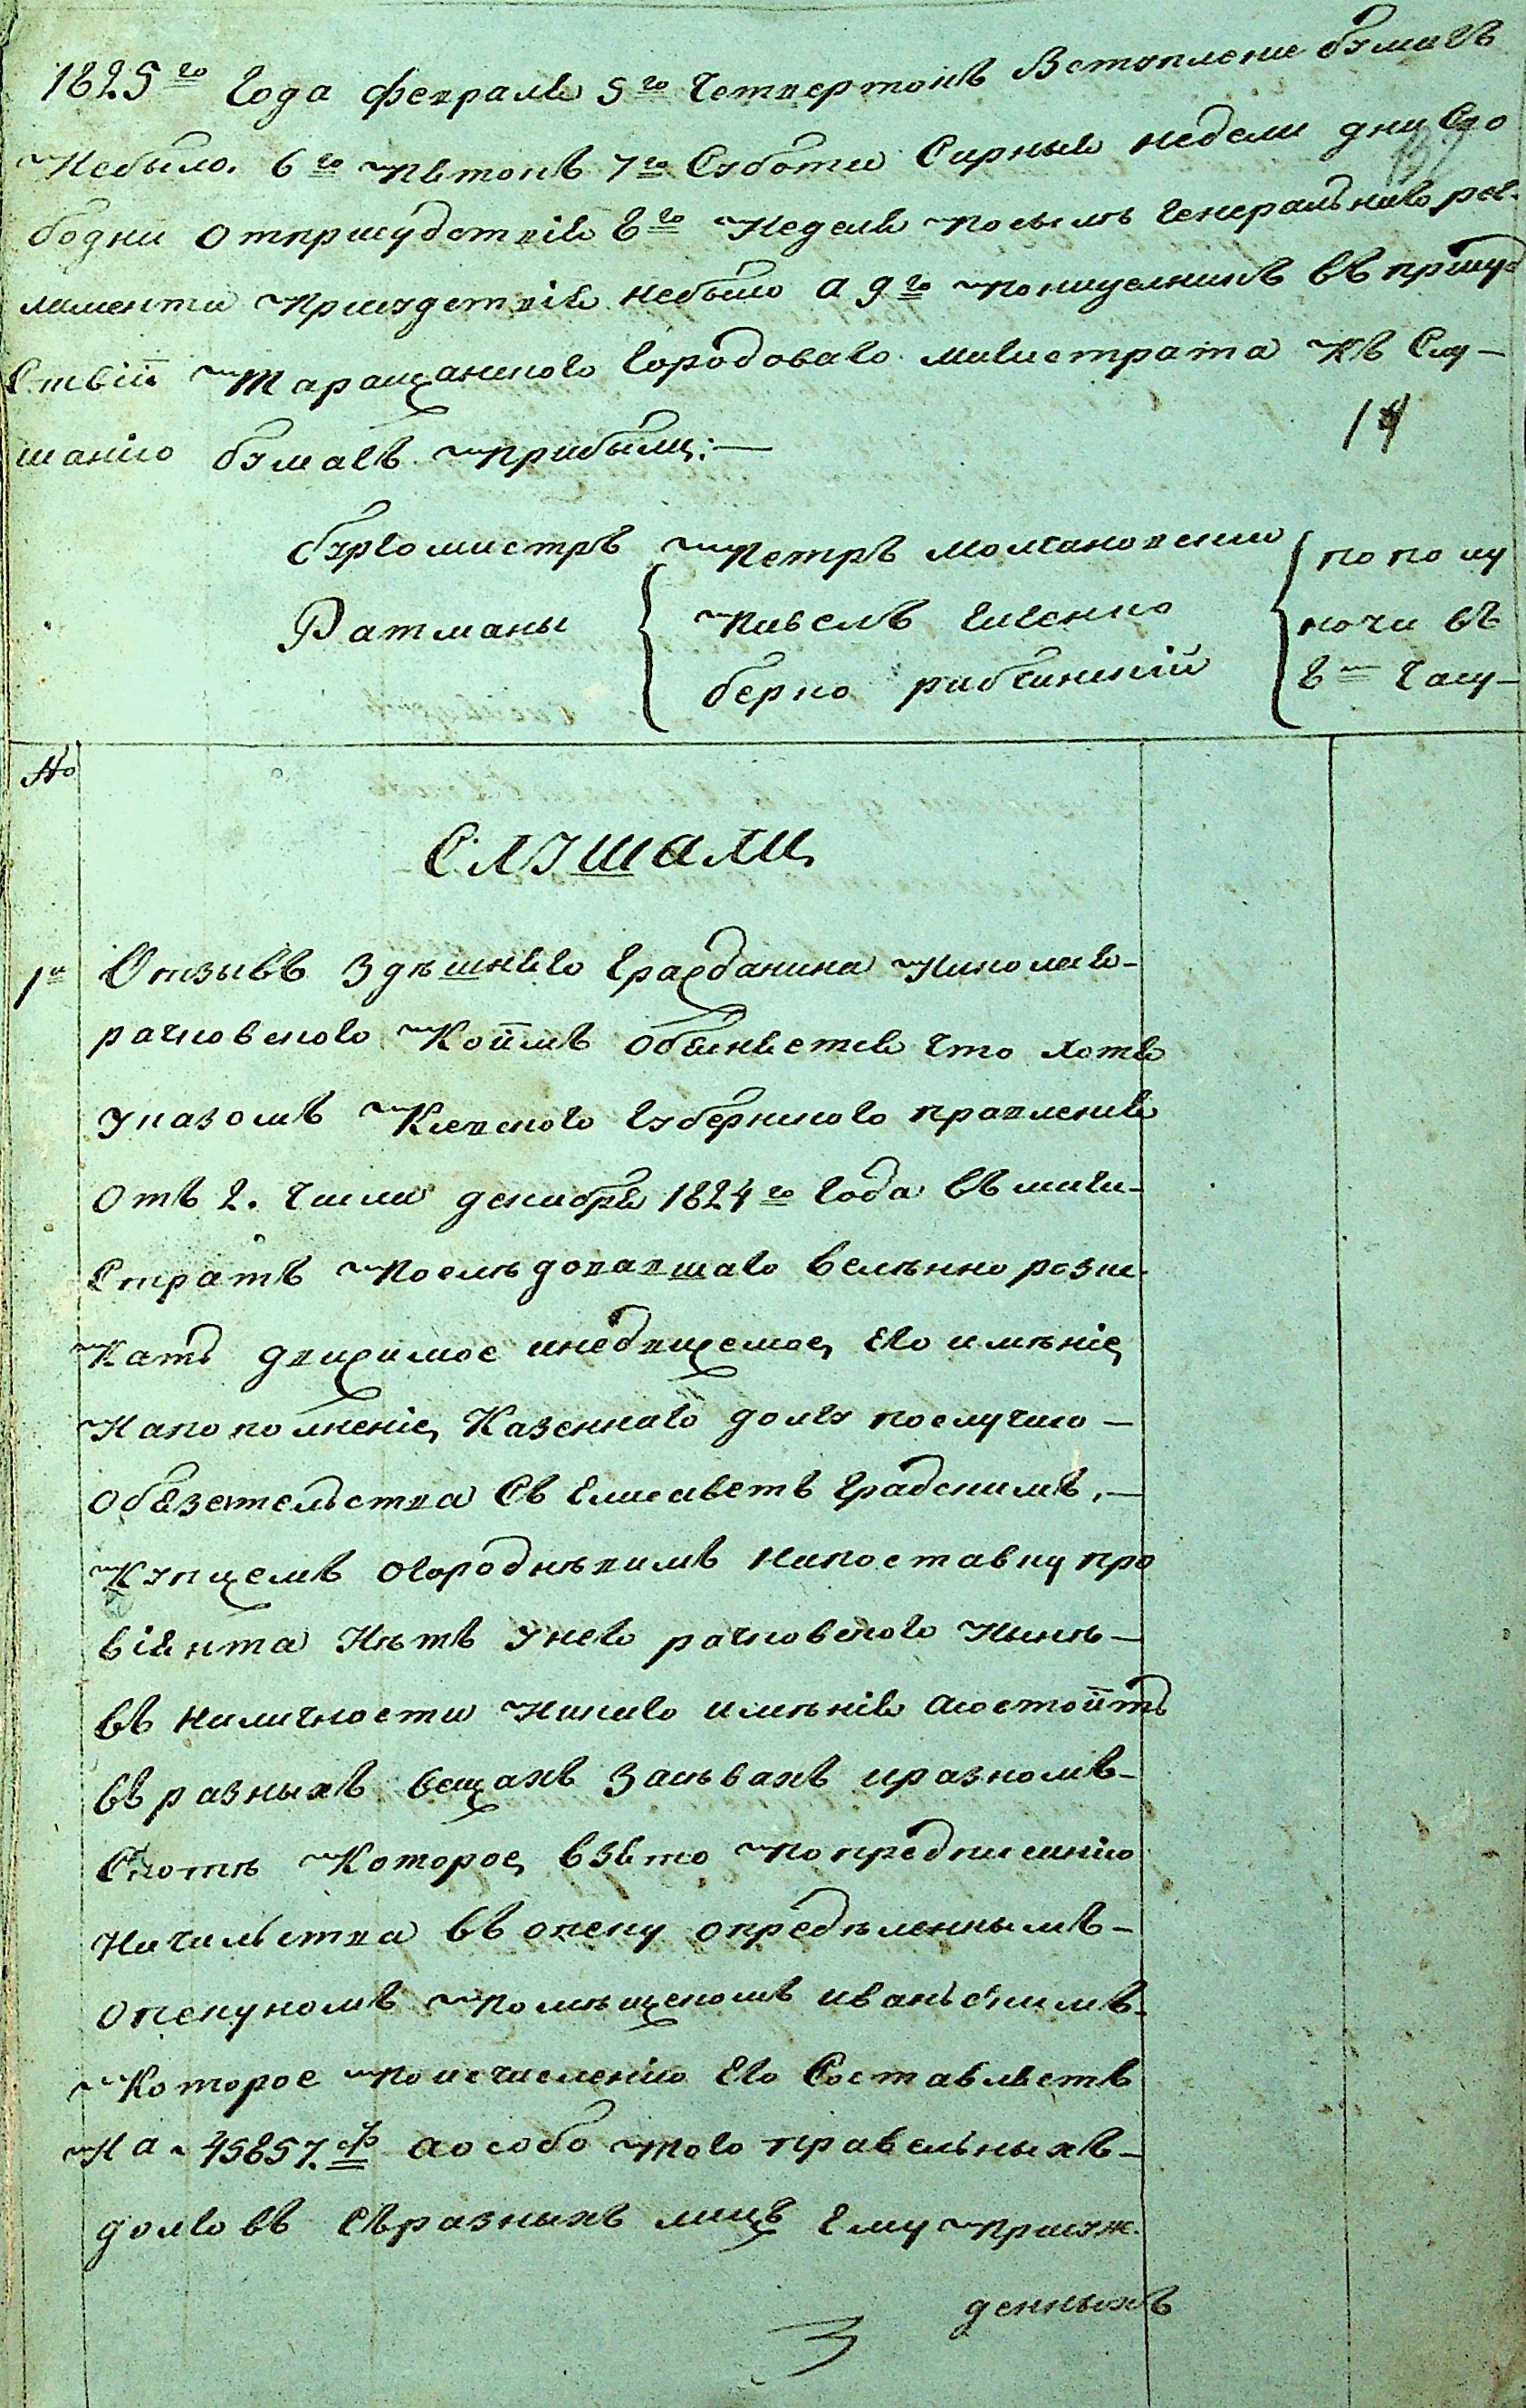 1825го Года февраля 5го Четвертокъ Вступления бумагъ
Небыло. 6го пятокъ 7го Суботы Сирныя недели дни Сво
бодни отприсудствія 8го Неделя посылъ Генеральнаго рег-
ламента присудствія небыло а 9го понидельникъ въ присуд
Ствіи Таращанского Городоваго магистрата къ Слу-
шанію бумагъ прибыли:
14
бургомистръ Петръ молчановский
Ратманы Павелъ
берко рабчинскій
по полу
ночи въ
8м Часу
№
Слушали
1е Отзывъ Здѣшняго Гражданина Николая
рачковского Коимъ объясняетъ Что хотя
указомъ Киевского Губернского правления
Отъ 2. Числа декабря 1824го Года въ маги-
Стратъ Послѣдовавшаго велѣнно розис-
Кать движимое инедвижемое Его имѣніе
Напополненіе Казеннаго долгу послучаю
Обязательства Съ Елисаветъ Градскимъ,
Купцемъ огороднѣкимъ напоставку про
віянта Нѣтъ Унего рачковского Нынѣ
въ наличности Никаго имѣнія асостоитъ
въ разныхъ вещахъ Засѣвахъ иразномъ
Скотѣ Которое взято попредписанію
Начальства въ опеку опредѣленнымъ
опекуномъ Помѣщекомъ иванскимъ
Которое поисчисленію Его Составляетъ
На 45857. аособо того правельныхъ
долговъ съразныхъ лицъ Ему присуж-
денныхъ
3